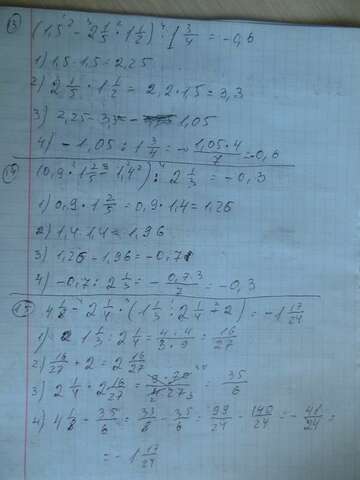 13) (1,5² - 2 1/5 · 1 1/2) : 1 3/4 = -0,6
1) 1,5 · 1,5 = 2,25
2) 2 1/5 · 1 1/2 = 2,2 · 1,5 = 3,3
3) 2,25 - 3,3 = - 1,05
4) - 1,05 : 1 3/4 = - 1,05 · 4/7 = -0,6
14) (0,9 · 1 2/5 - 1,4²) : 2 1/3 = -0,3
1) 0,9 · 1 2/5 = 0,9 · 1,4 = 1,26
2) 1,4 · 1,4 = 1,96
3) 1,26 - 1,96 = -0,7
4) -0,7 : 2 1/3 = - 0,7 · 3/7 = -0,3
15) 4 1/8 - 2 1/4 · (1 1/3 : 2 1/4 + 2) = -1 17/24
1) 1 1/3 : 2 1/4 = 4 · 4/3 · 9 = 16/27
2) 16/27 + 2 = 2 16/27
3) 2 1/4 · 2 16/27 = 35/6
4) 4 1/8 - 35/6 = 33/8 - 35/6 = 99/24 - 140/24 = - 41/24 =
= -1 17/24